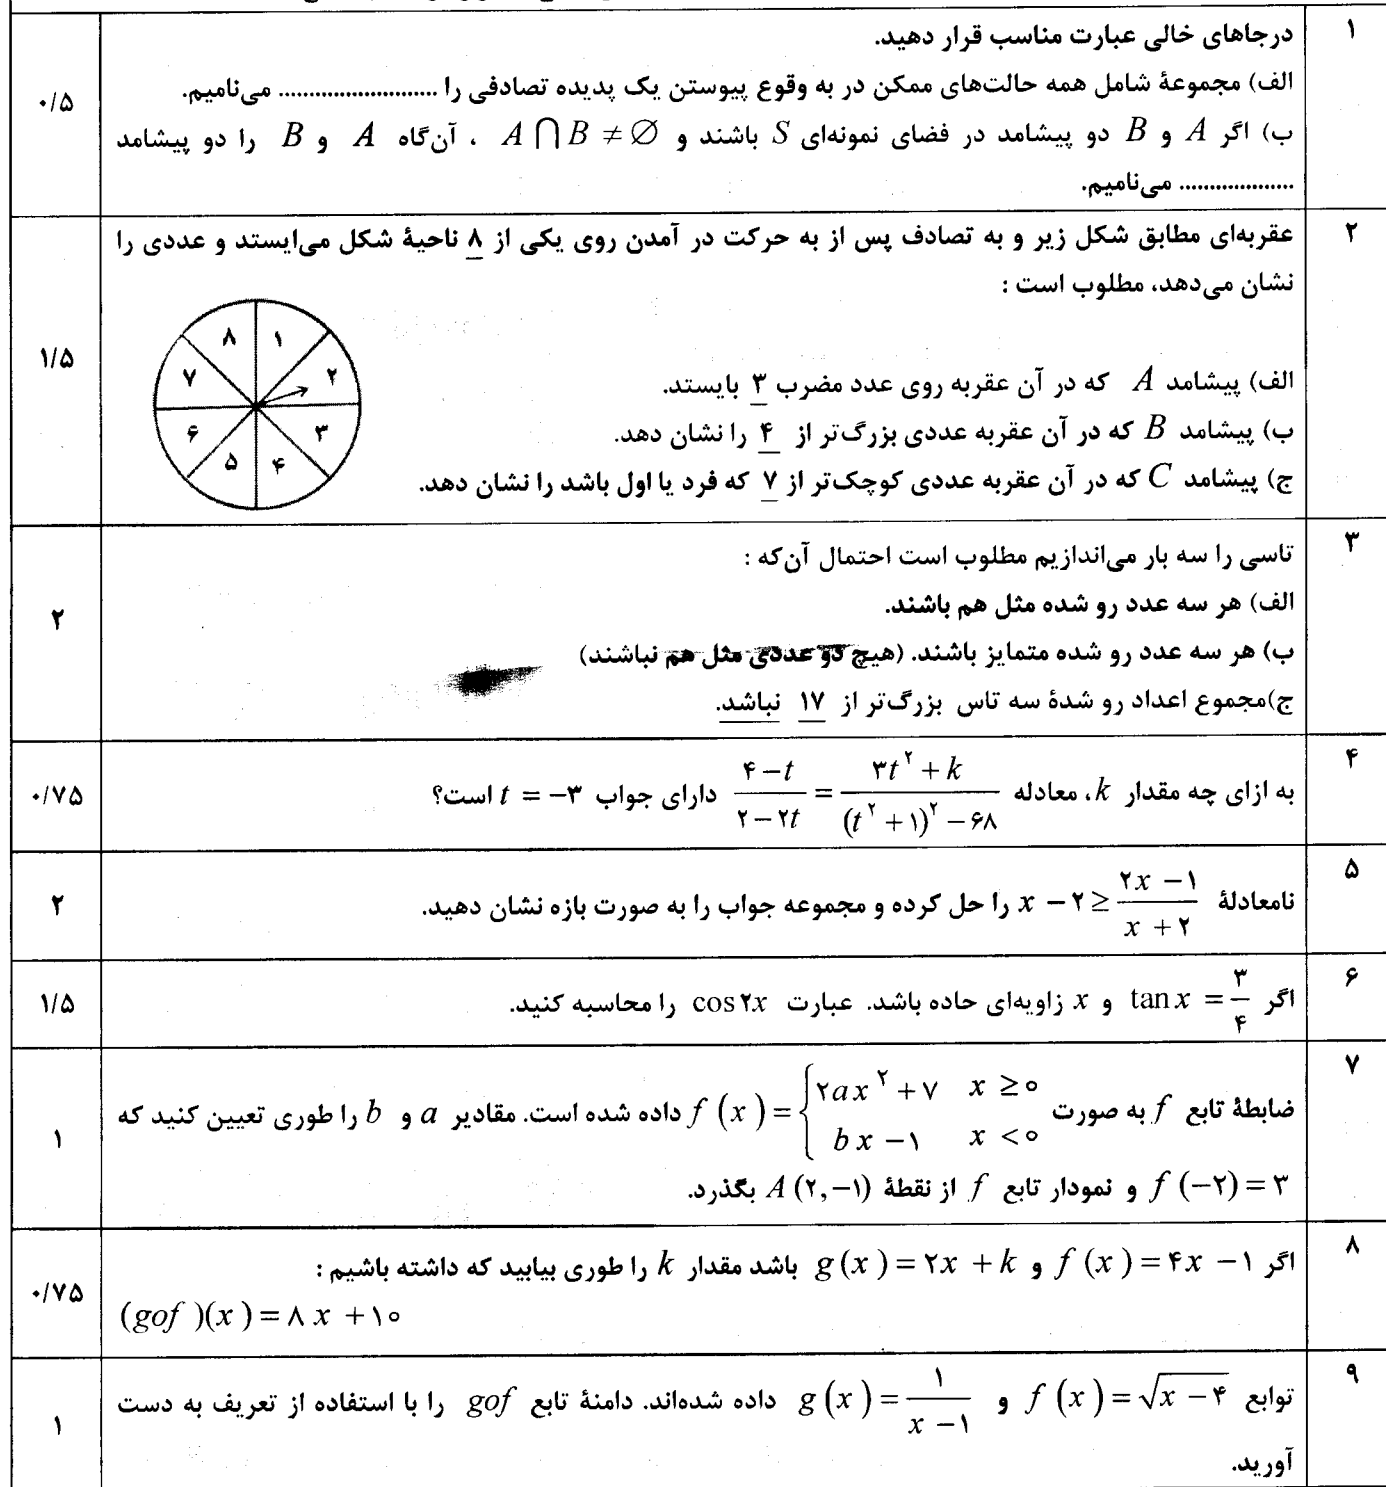 ۱
درجاهای خالی عبارت مناسب قرار دهید.
الف) مجموعهٔ شامل همه حالت‌های ممکن در به وقوع پیوستن یک پدیده تصادفی را .......................... می‌نامیم.
۰/۵
ب) اگر A و B دو پیشامد در فضای نمونه‌ای S باشند و A ⋂ B ≠ ∅ ، آن‌گاه A و B را دو پیشامد
................... می‌نامیم.
۲
عقربه‌ای مطابق شکل زیر و به تصادف پس از به حرکت در آمدن روی یکی از ۸ ناحیهٔ شکل می‌ایستد و عددی را
نشان می‌دهد، مطلوب است :
۱/۵
الف) پیشامد A که در آن عقربه روی عدد مضرب ۳ بایستد.
ب) پیشامد B که در آن عقربه عددی بزرگ‌تر از ۴ را نشان دهد.
ج) پیشامد C که در آن عقربه عددی کوچک‌تر از ۷ که فرد یا اول باشد را نشان دهد.
۱
۲
۳
۴
۵
۶
۷
۸
۳
تاسی را سه بار می‌اندازیم مطلوب است احتمال آن‌که :
الف) هر سه عدد رو شده مثل هم باشند.
۲
ب) هر سه عدد رو شده متمایز باشند. (هیچ دو عددی مثل هم نباشند)
ج)مجموع اعداد رو شدهٔ سه تاس بزرگ‌تر از ۱۷ نباشد.
۴
به ازای چه مقدار k، معادله (۴−t)/(۲−۲t) = (۳t^۲+k)/((t^۲+۱)^۲−۶۸) دارای جواب t = −۳ است؟
۰/۷۵
۵
نامعادلهٔ x − ۲ ≤ (۲x − ۱)/(x + ۲) را حل کرده و مجموعه جواب را به صورت بازه نشان دهید.
۲
۶
اگر tan x = ۳/۴ و x زاویه‌ای حاده باشد. عبارت cos ۲x را محاسبه کنید.
۱/۵
۷
ضابطهٔ تابع f به صورت f (x) = { ۲ax^۲ + ۷ x ≥ ۰ ; bx − ۱ x < ۰ داده شده است. مقادیر a و b را طوری تعیین کنید که
۱
f (−۲) = ۳ و نمودار تابع f از نقطهٔ A (۲,−۱) بگذرد.
۸
اگر f (x) = ۴x − ۱ و g (x) = ۲x + k باشد مقدار k را طوری بیابید که داشته باشیم :
۰/۷۵
(gof )(x) = ۸x + ۱۰
۹
توابع f (x) = √(x − ۴) و g (x) = ۱/(x − ۱) داده شده‌اند. دامنهٔ تابع gof را با استفاده از تعریف به دست
۱
آورید.